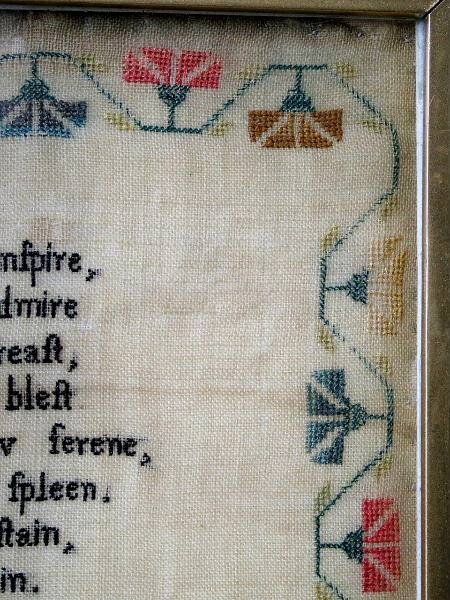 nſpire,
dmire
reaſt,
bleſt
v ſerene,
ſpleen.
ſtain,
in.